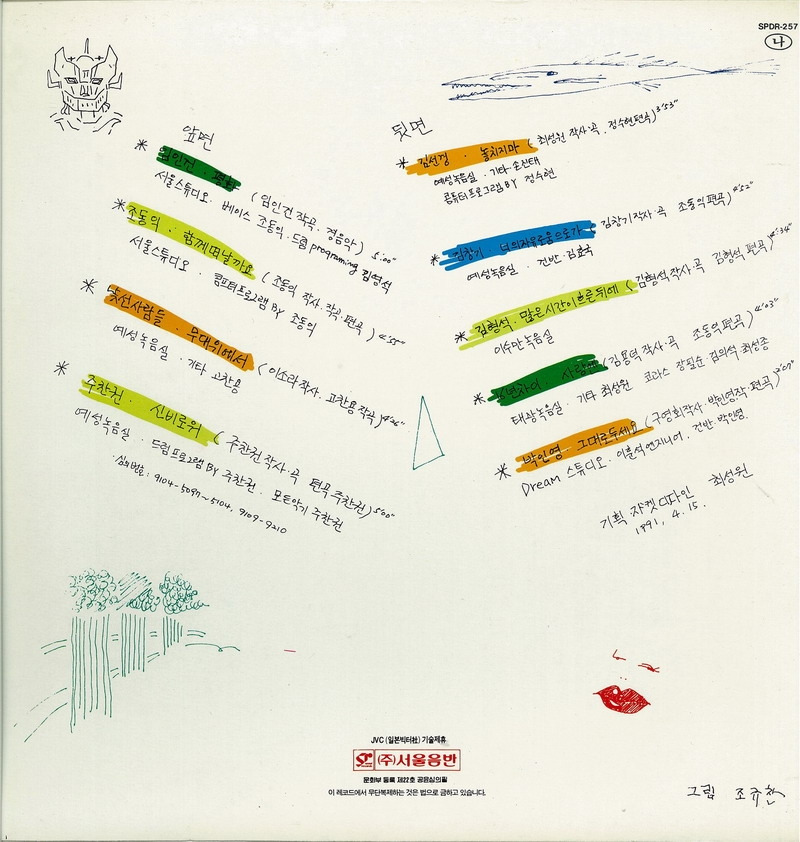 SPDR-257
나
앞면
* 임인건 · 평화 (임인건 작곡 · 경음악) 5'00"
서울스튜디오 · 베이스 조동익 · 드럼 programing 김영석
* 조동익 · 함께 떠날까요 (조동익 작사 · 작곡 · 편곡) 4'50"
서울스튜디오 · 컴퓨터프로그램 By 조동익
* 낯선사람들 · 무대위에서 (이소라 작사, 고찬용 작곡)
예성녹음실 · 기타 고찬용
* 주찬권 · 신비로워 (주찬권 작사 · 곡 편곡 주찬권) 5'00"
예성녹음실 · 드럼프로그램 BY 주찬권 · 모든악기 주찬권
심의번호 : 9104-5097~5104, 9109-9210
뒷면
* 김선경 · 놓치지마 (최성원 작사·곡 · 정수현편곡) 3'53"
예성녹음실 · 기타-손진태
콤퓨터프로그램 BY 정수현
* 김창기 · 너의자유로움으로가 (김창기작사·곡 조동익편곡) 4'52"
예성녹음실 · 건반·김효국
* 김형석 · 많은시간이흐른뒤에 (김형석작사·곡 김형석 편곡) 4'34"
이수만녹음실
* (김용덕 작사·곡 조동익편곡) 4'03"
태광녹음실 · 기타 최성원 코러스 장필순 김의석 최성종
* 박인영 그대로두세요 (구영회작사·박인영작·편곡) 3'07"
Dream 스튜디오 · 이훈석엔지니어, 건반·박인영.
기획·쟈켓디자인 최성원
1991, 4. 15.
JVC (일본빅터社) 기술제휴
(주)서울음반
문화부 등록 제22호 공윤심의필
이 레코드에서 무단복제하는 것은 법으로 금하고 있습니다.
그림 조규찬